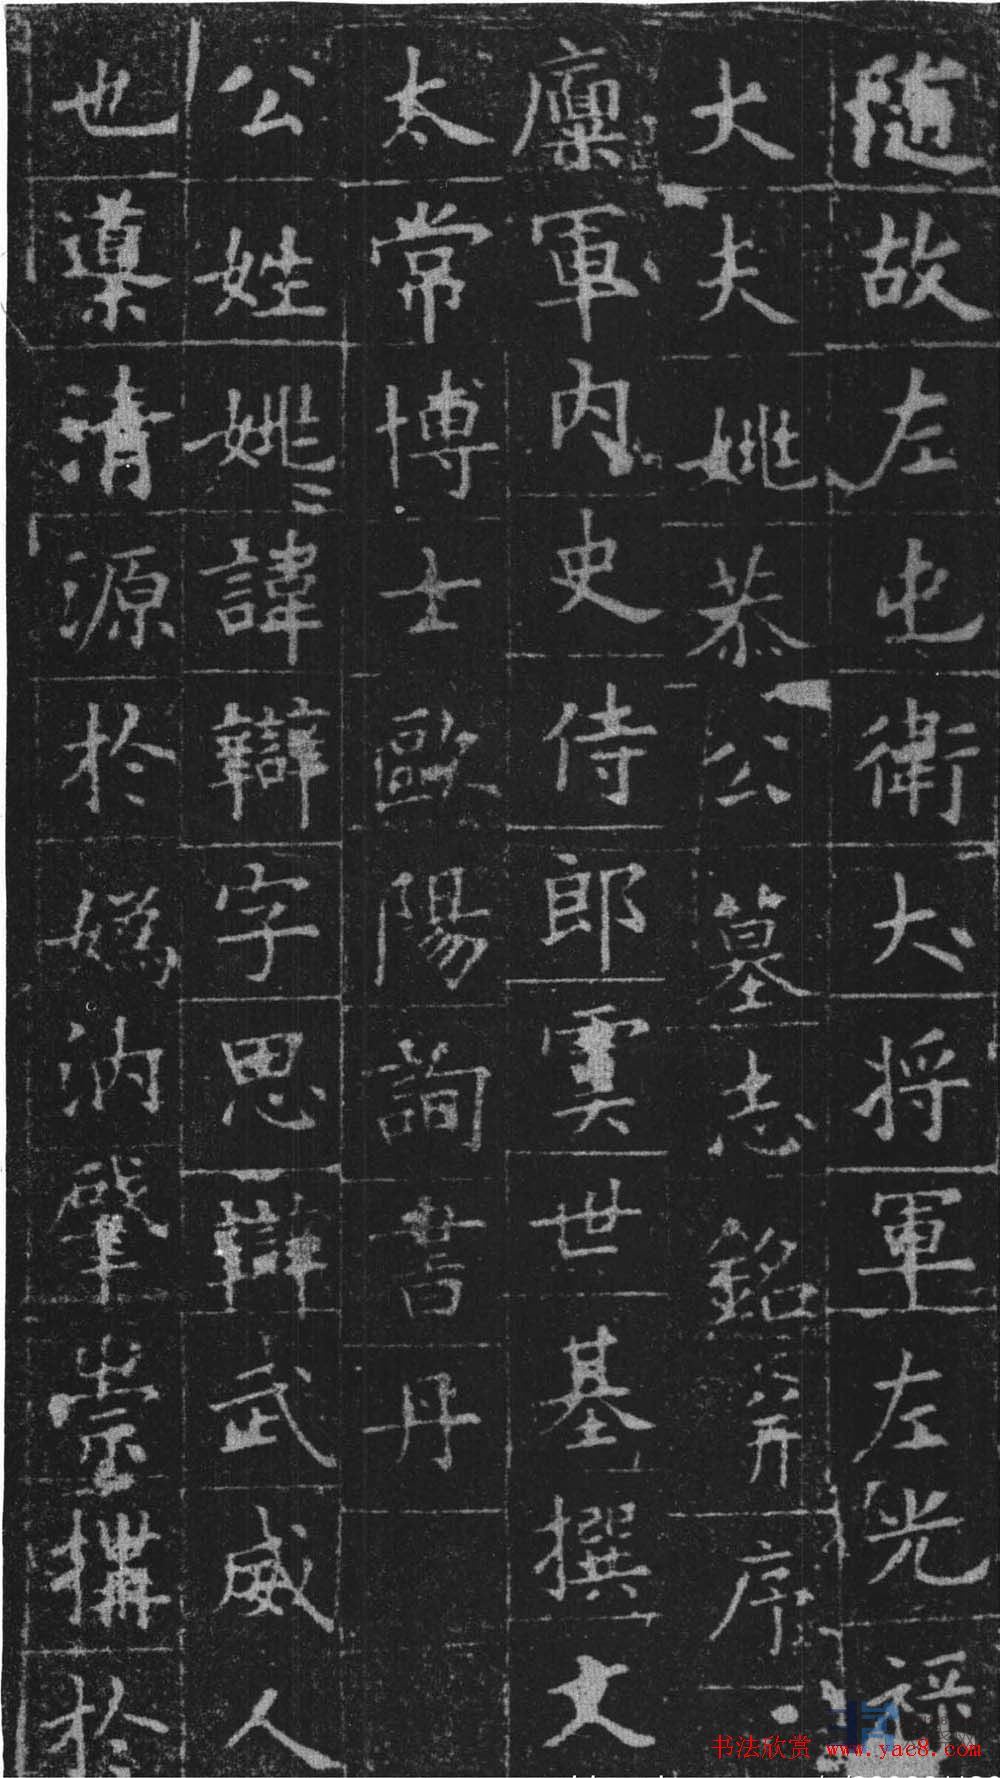 隨故左屯衛大将軍左光祿
大夫姚恭公墓志銘并序
廩軍内史侍郎虞世基撰文
太常博士歐陽詢書丹
公姓姚諱辯字思辯武威人
也導清源於嬀汭肇崇構於
书法欣赏 www.yac8.com